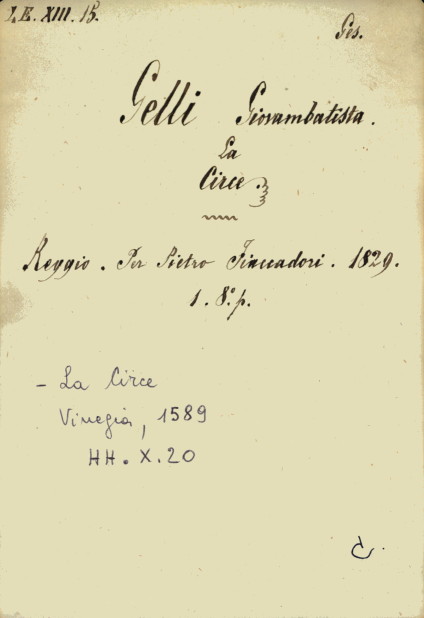 I.E. XIII. 15.
Ges.
Gelli Giovambatista.
La
Circe.
Reggio. Per Pietro Fiaccadori. 1829.
1. 8.° p.
- La Circe
Vinegia, 1589
HH. X. 20